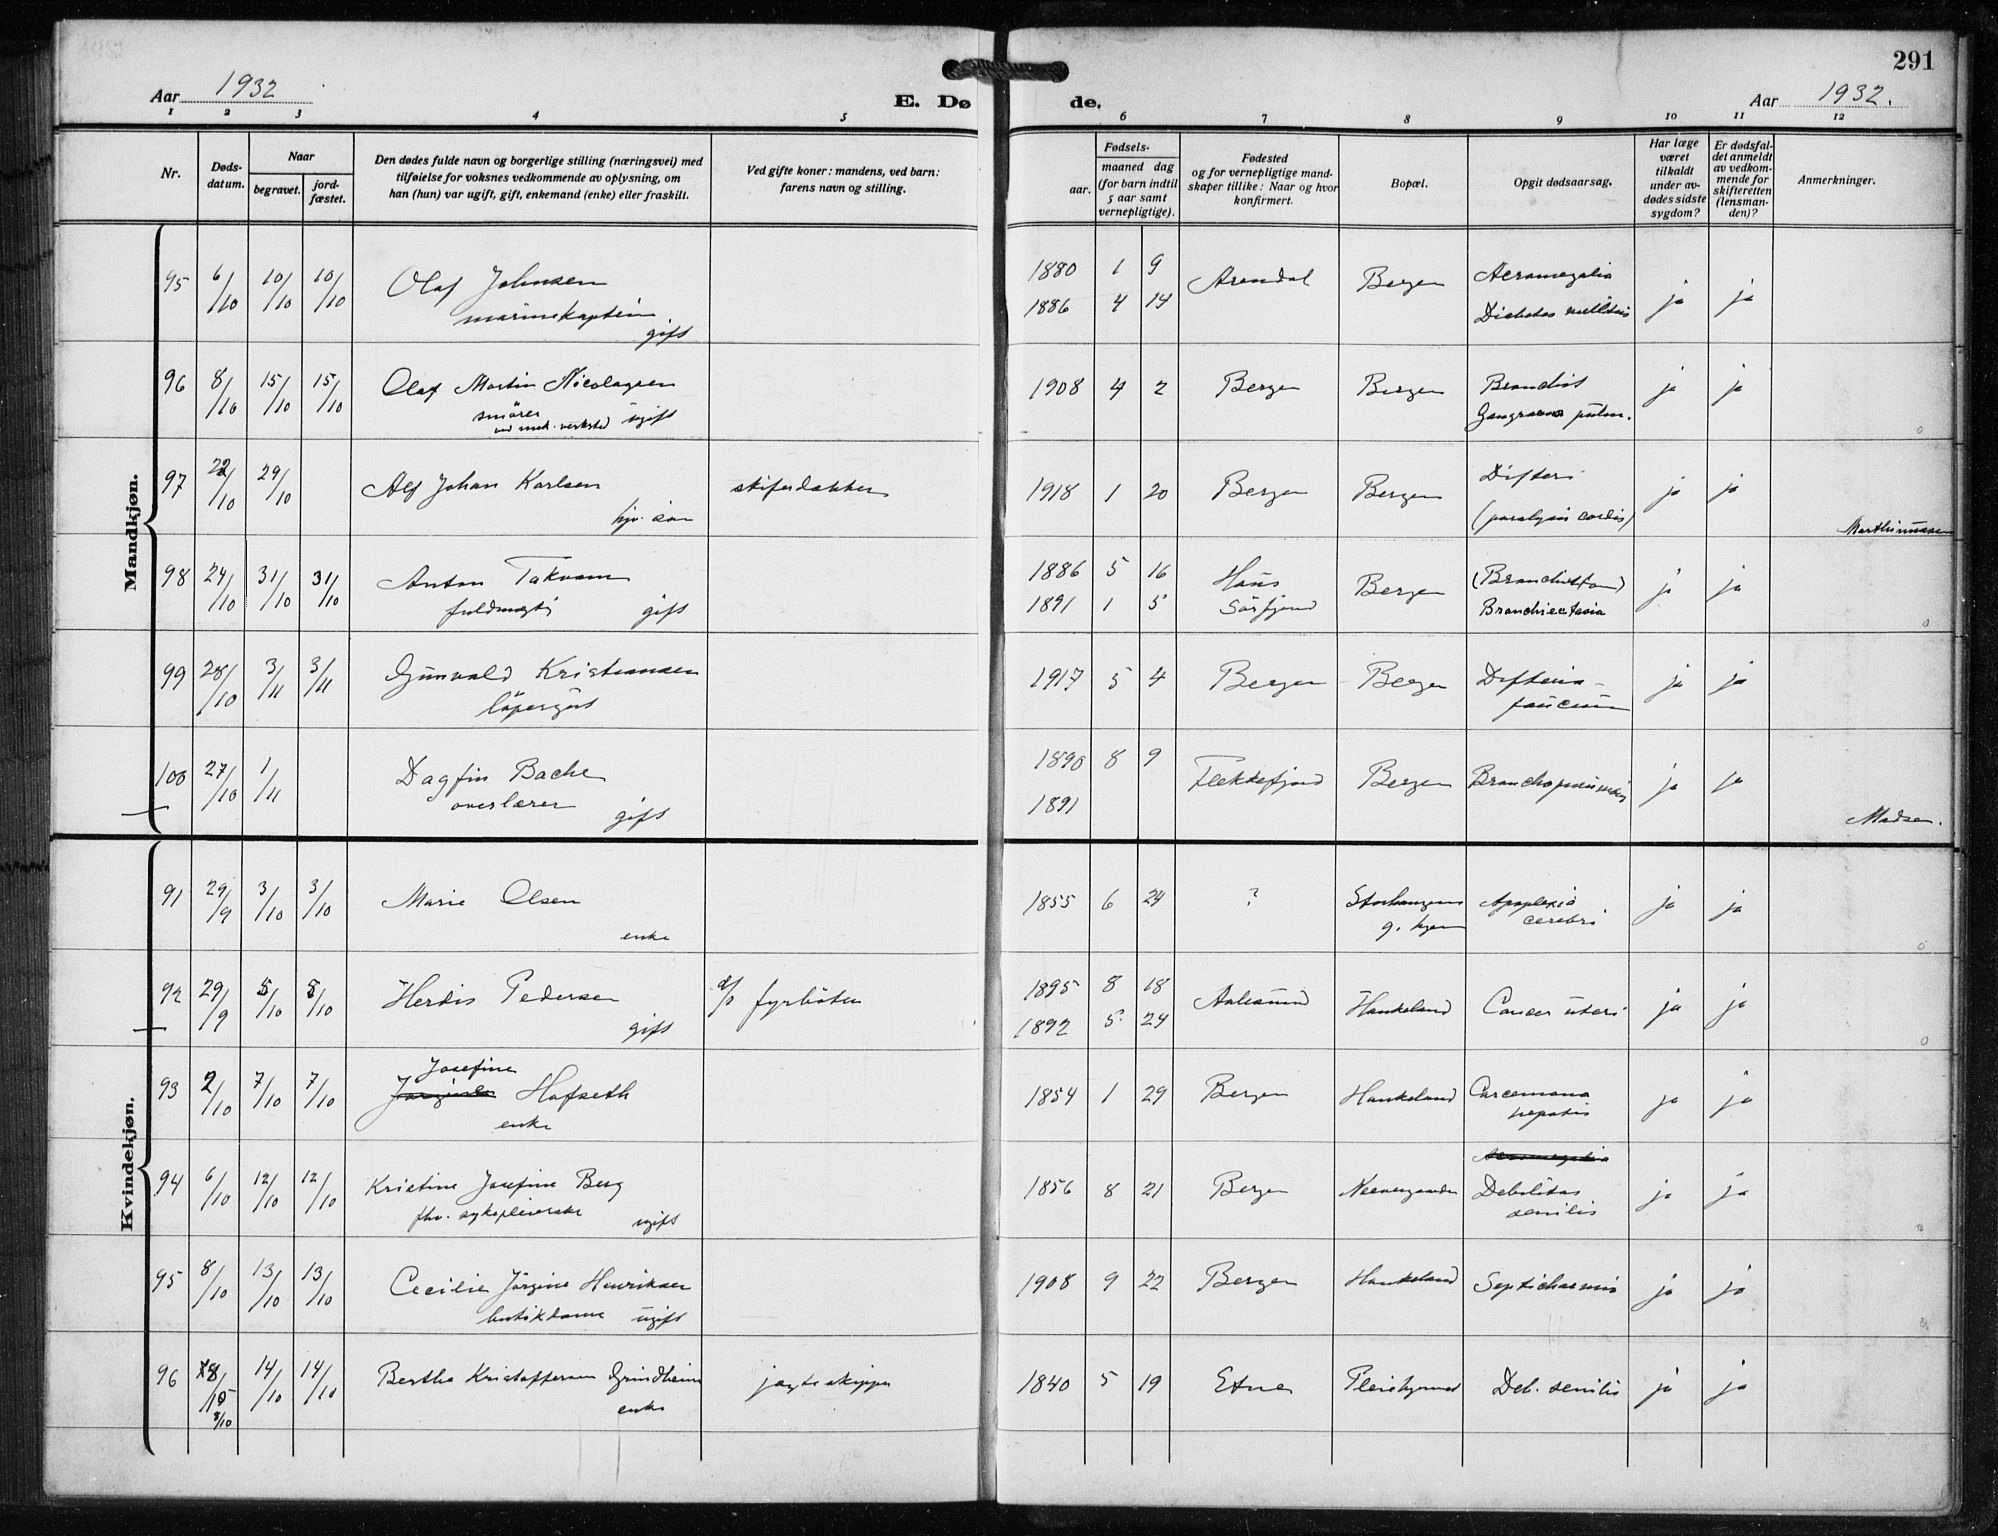 291
Aar 1932 E. Døde. Aar 1932.
1 2 3 4 5 6 7 8 9 10 11 12
Nr.
Døds-datum.
Naar
begravet.
jord-fæstet.
Den dødes fulde navn og borgerlige stilling (næringsvei) med
tilføielse for voksnes vedkommende av oplysning, om
han (hun) var ugift, gift, enkemand (enke) eller fraskilt.
Ved gifte koner: mandens, ved barn:
farens navn og stilling.
Fødsels-
aar.
maaned dag
(for barn indtil
5 aar samt
vernepligtige).
Fødested
og for vernepligtige mand-
skaper tillike: Naar og hvor
konfirmert.
Bopæl.
Opgit dødsaarsag.
Har læge
været
tilkaldt
under av-
dødes sidste
sygdom?
Er dødsfal-
det anmeldt
av vedkom-
mende for
skifteretten
(lensman-
den)?
Anmerkninger.
Mandkjøn.
95 6/10 10/10 10/10 Olaf Johnsen 1880 1 9 Arendal Bergen Acromegalia ja ja
marinekaptein 1886 4 14 Diabetes mellitus
gift
96 8/10 15/10 15/10 Olaf Martin Nicolaysen 1908 4 2 Bergen Bergen Bronchit ja ja
smörer Gangraena pulm.
ved mek. verksted ugift
97 22/10 29/10 Alf Johan Karlsen skiferdækker 1918 1 20 Bergen Bergen Difteri ja ja
hjv. sön (paralysis cordis) Marthinussen
98 24/10 31/10 31/10 Anton Takvam 1886 5 16 Haus Bergen ja ja
fuldmægtig gift 1891 1 5 Sörfjord Bronchiectasia
99 28/10 3/11 3/11 Gunvald Kristiansen 1917 5 4 Bergen Bergen Difteria ja ja
löpergut faucium
100 27/10 1/11 Dagfin Bache 1890 8 9 Flekkefjord Bergen Bronchopneumoni ja ja
overlærer 1891
gift Madsen.
Kvindekjøn.
91 29/9 3/10 3/10 Marie Olsen 1855 6 24 ? Storhaugens Apoplexia ja ja
enke g. hjem cerebri
92 29/9 5/10 8/10 Herdis Pedersen fyrböter 1895 8 18 Aalesund Haukeland Cancer uteri ja ja
gift 1892 5 24
93 2/10 7/10 7/10 Josefine Hofseth 1854 1 29 Bergen Haukeland Carcemona ja ja
enke hepatis
94 6/10 12/10 12/10 Kristine Josefine Berg 1856 8 21 Bergen Acromegalia Debilitas ja ja
fhv. sykepleierske ugift senilis
95 8/10 13/10 13/10 Cecilie Jörgine Henriksen 1908 9 22 Bergen Haukeland Septichaemia ja ja
butikdame ugift
96 8/10 14/10 14/10 Bertha Kristoffersen Grindheim jagteskipper 1840 5 19 Etne Pleiehjemmet Deb. senilis ja ja
8/10 enke